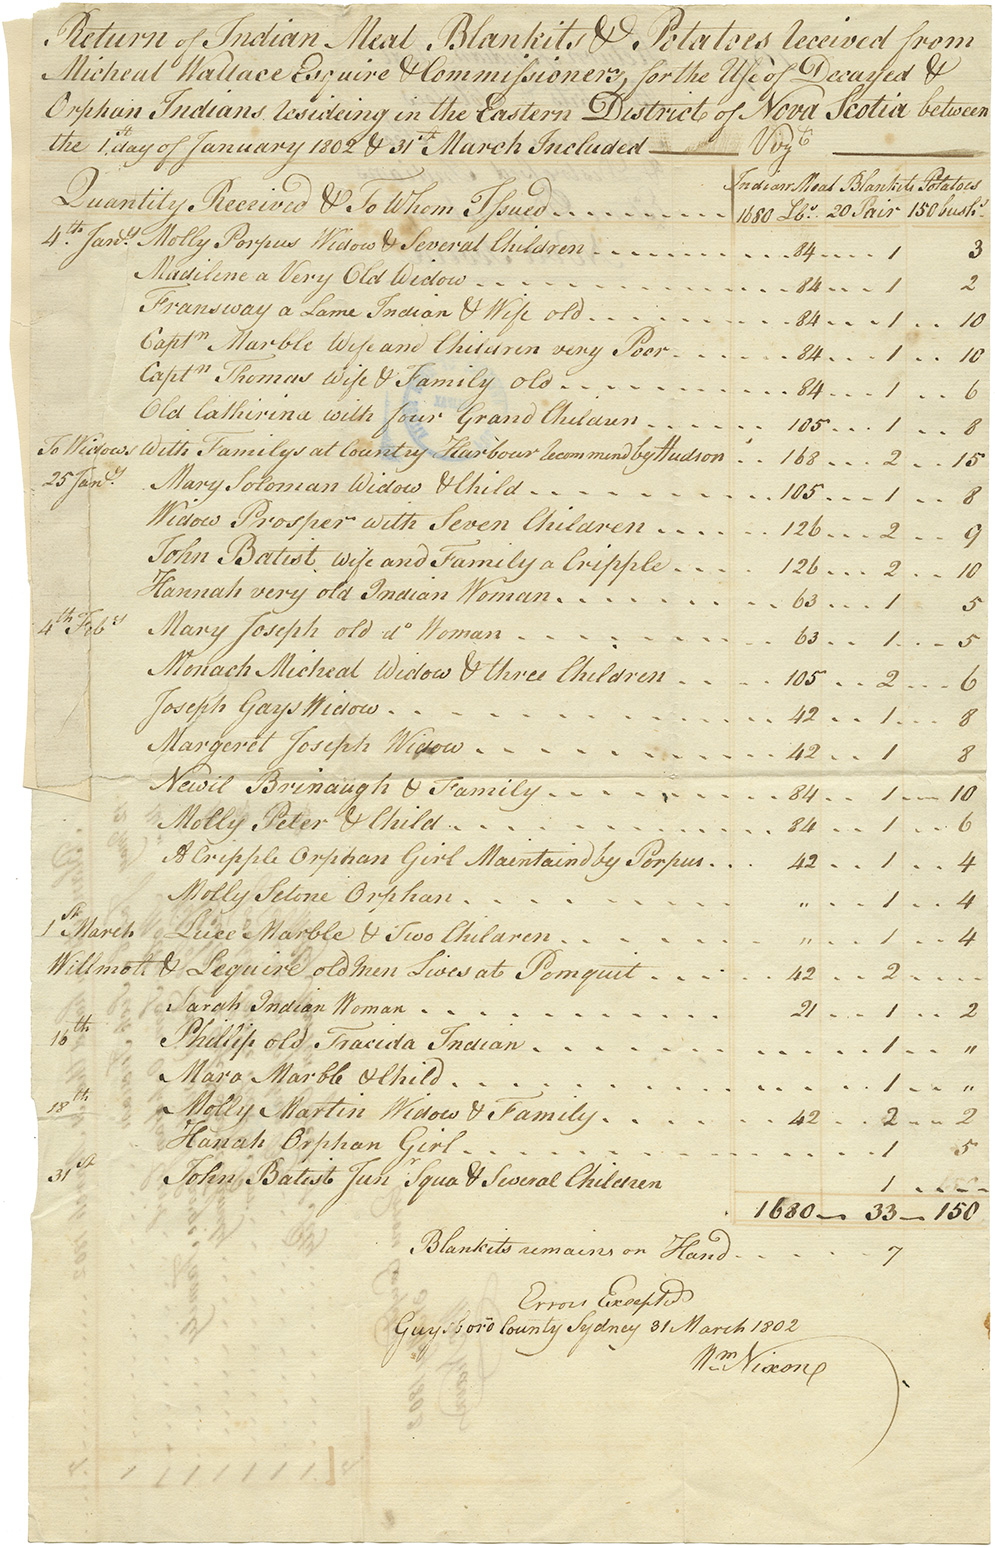 Return of Indian Meal Blankits & Potatoes Received from
Micheal Wallace Esquire & Commissioners, for the Use of Decayed &
Orphan Indians Resideing in the Eastern District of Nova Scotia between
the 1st day of January 1802 & 31st March Included Vizt
Indian Meal Blankits Potatoes
Quantity Received & To Whom Issued 1680 Lbs. 20 Pair 150 bushs
4th Jany Molly Porpus Widow & Several Children 84 1 3
Madilene a Very Old Widow 84 1 2
Fransway a Lame Indian & Wife old 84 1 10
Captn Marble Wife and Children very Poor 84 1 10
Captn Thomas Wife & Family old 84 1 6
Old Cathirina with four Grand Children 105 1 8
To Widows With Familys at Country Harbour Recommend by Hudson 168 2 15
25 Jany Mary Soloman Widow & Child 105 1 8
Widow Prosper with Seven Children 126 2 9
John Batist Wife and Family a Cripple 126 2 10
Hannah very old Indian Woman 63 1 5
4th Feby Mary Joseph old do Woman 63 1 5
Monach Micheal Widow & three Children 105 2 6
Joseph Gays Widow 42 1 8
Margeret Joseph Widow 42 1 8
Newil Brinaugh & Family 84 1 10
Molly Peter & Child 84 1 6
A Cripple Orphan Girl Maintaind by Porpus 42 1 4
Molly Setone Orphan " 1 4
1st March Luce Marble & Two Children " 1 4
Willmott & Lequire old men Lives at Pomquit 42 2
Sarah Indian Woman 21 1 2
16th Philip old Tracida Indian 1 "
Mara Marble & Child 1 "
18th Molly Martin Widow & Family 42 2 2
Hanah Orphan Girl 1 5
31st John Batist Junr Squa & Several Children 1
1680 33 150
Blankits remains on Hand 7
Errors Excepted
Guysboro County Sydney 31 March 1802
Wm Nixon